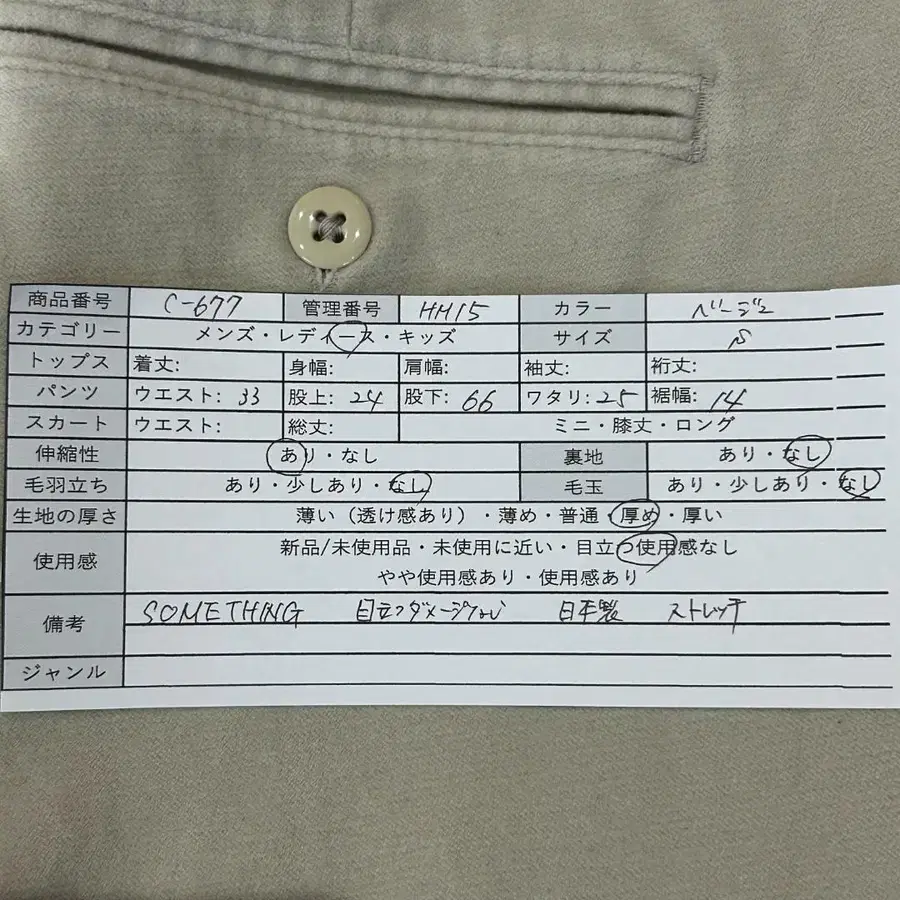 商品番号 C-677 管理番号 HH15 カラー ベージュ
カテゴリー メンズ・レディース・キッズ サイズ S
トップス 着丈: 身幅: 肩幅: 袖丈: 裄丈:
パンツ ウエスト: 33 股上: 24 股下: 66 ワタリ: 25 裾幅: 14
スカート ウエスト: 総丈: ミニ・膝丈・ロング
伸縮性 あり・なし 裏地 あり・なし
毛羽立ち あり・少しあり・なし 毛玉 あり・少しあり・なし
生地の厚さ 薄い（透け感あり）・薄め・普通・厚め・厚い
使用感 新品/未使用品・未使用に近い・目立つ使用感なし
やや使用感あり・使用感あり
備考 SOMETHING 目立つダメージなし 日本製 ストレッチ
ジャンル